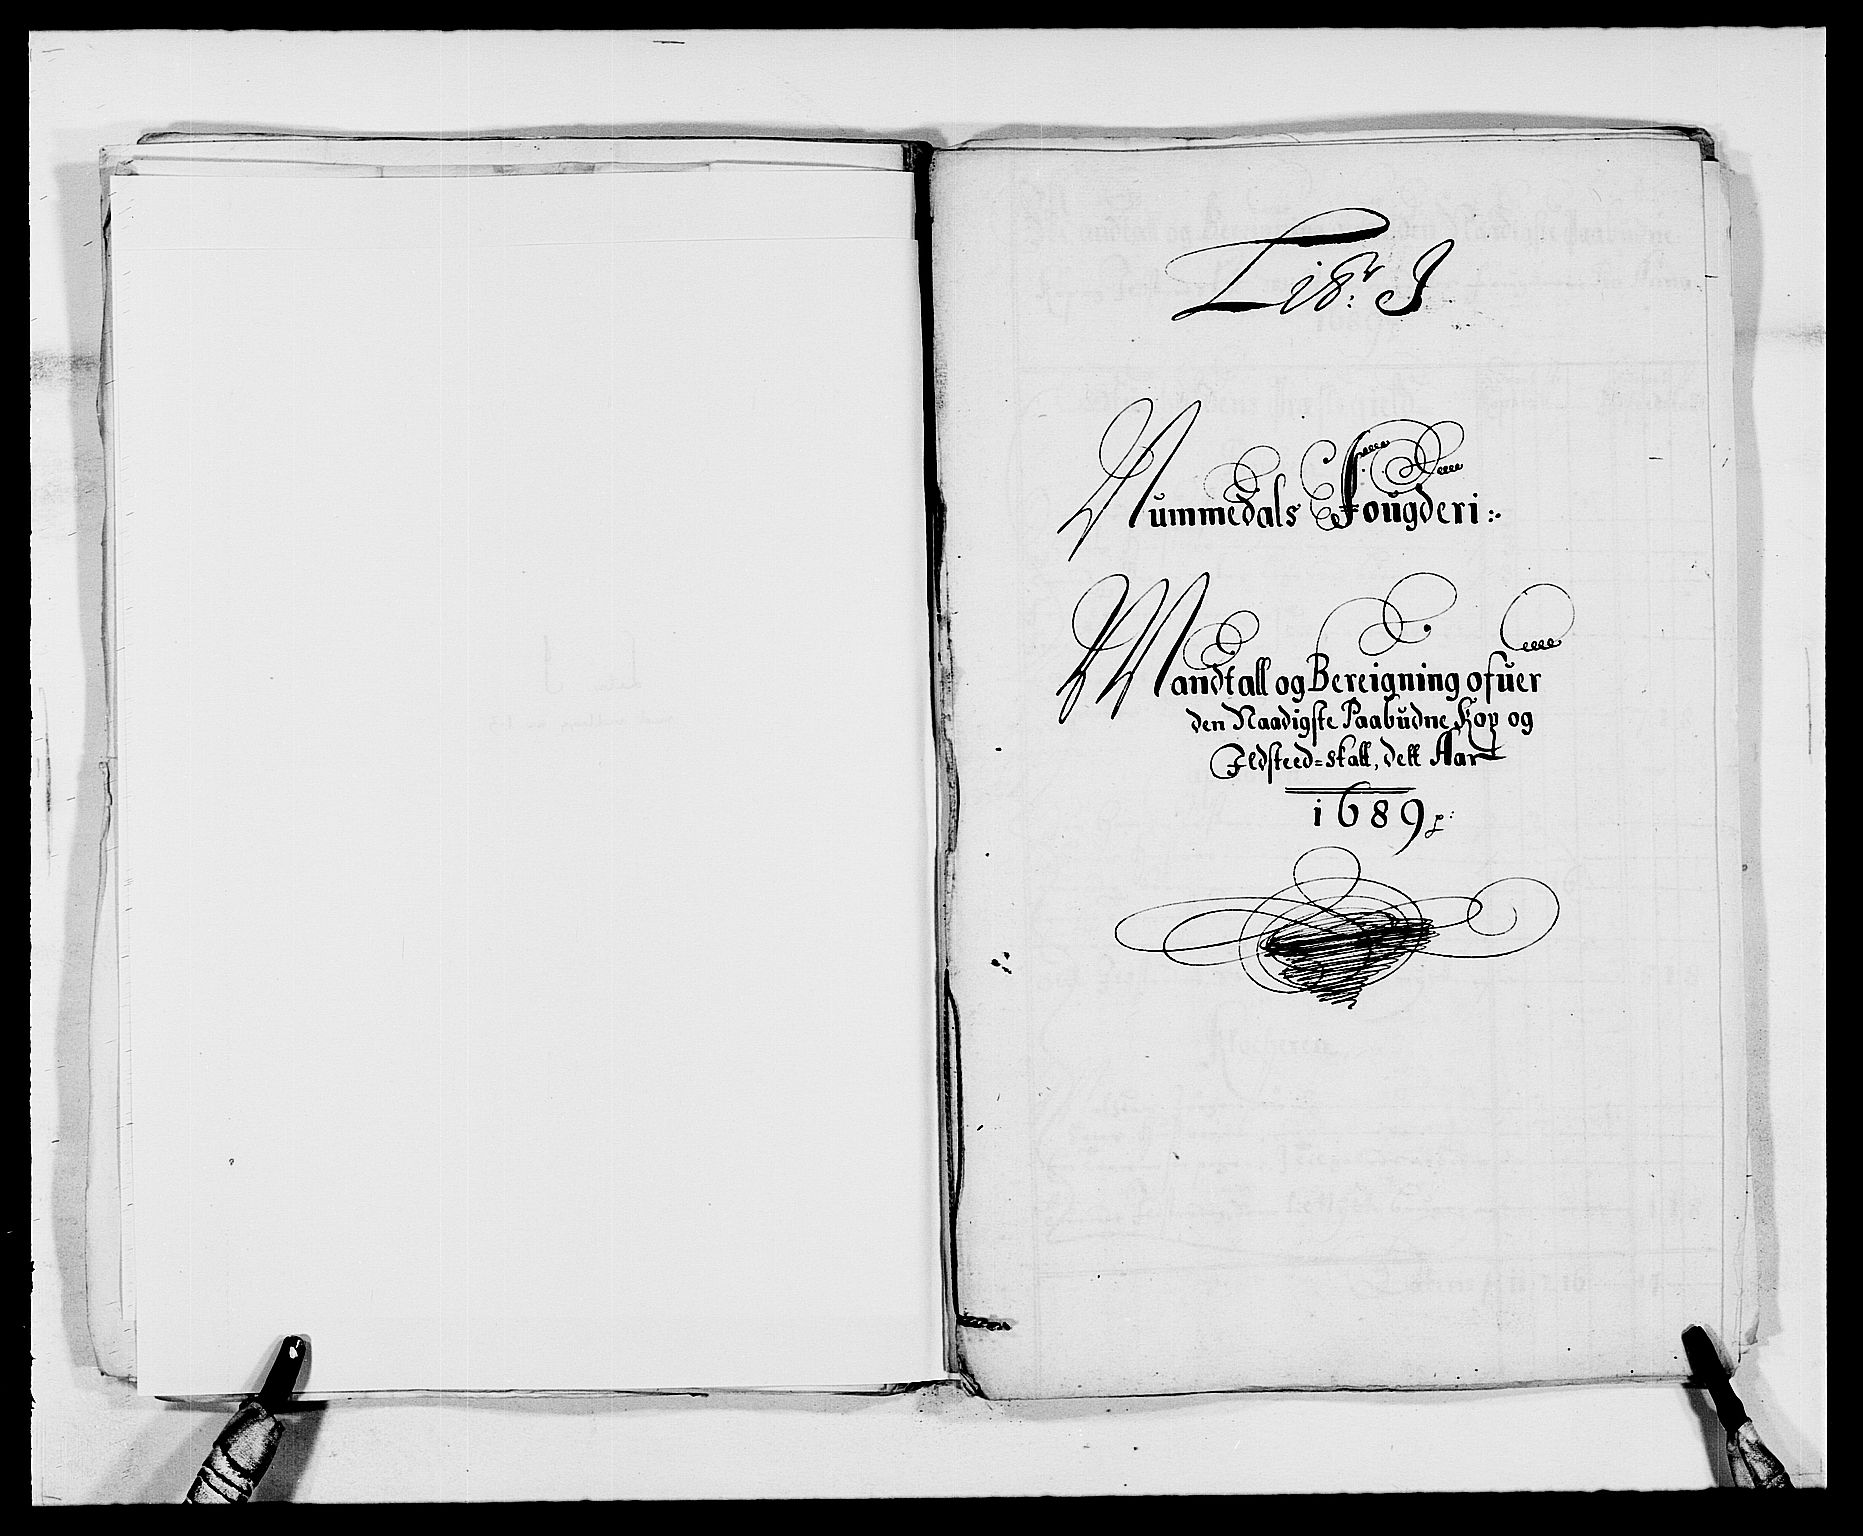 Litr: J
Nummedals Fougderi:
Mandtall og Bereigning ofuer
den Naadigste Paabudne Kop og
Ildsteed=skatt, dett Aar
1689